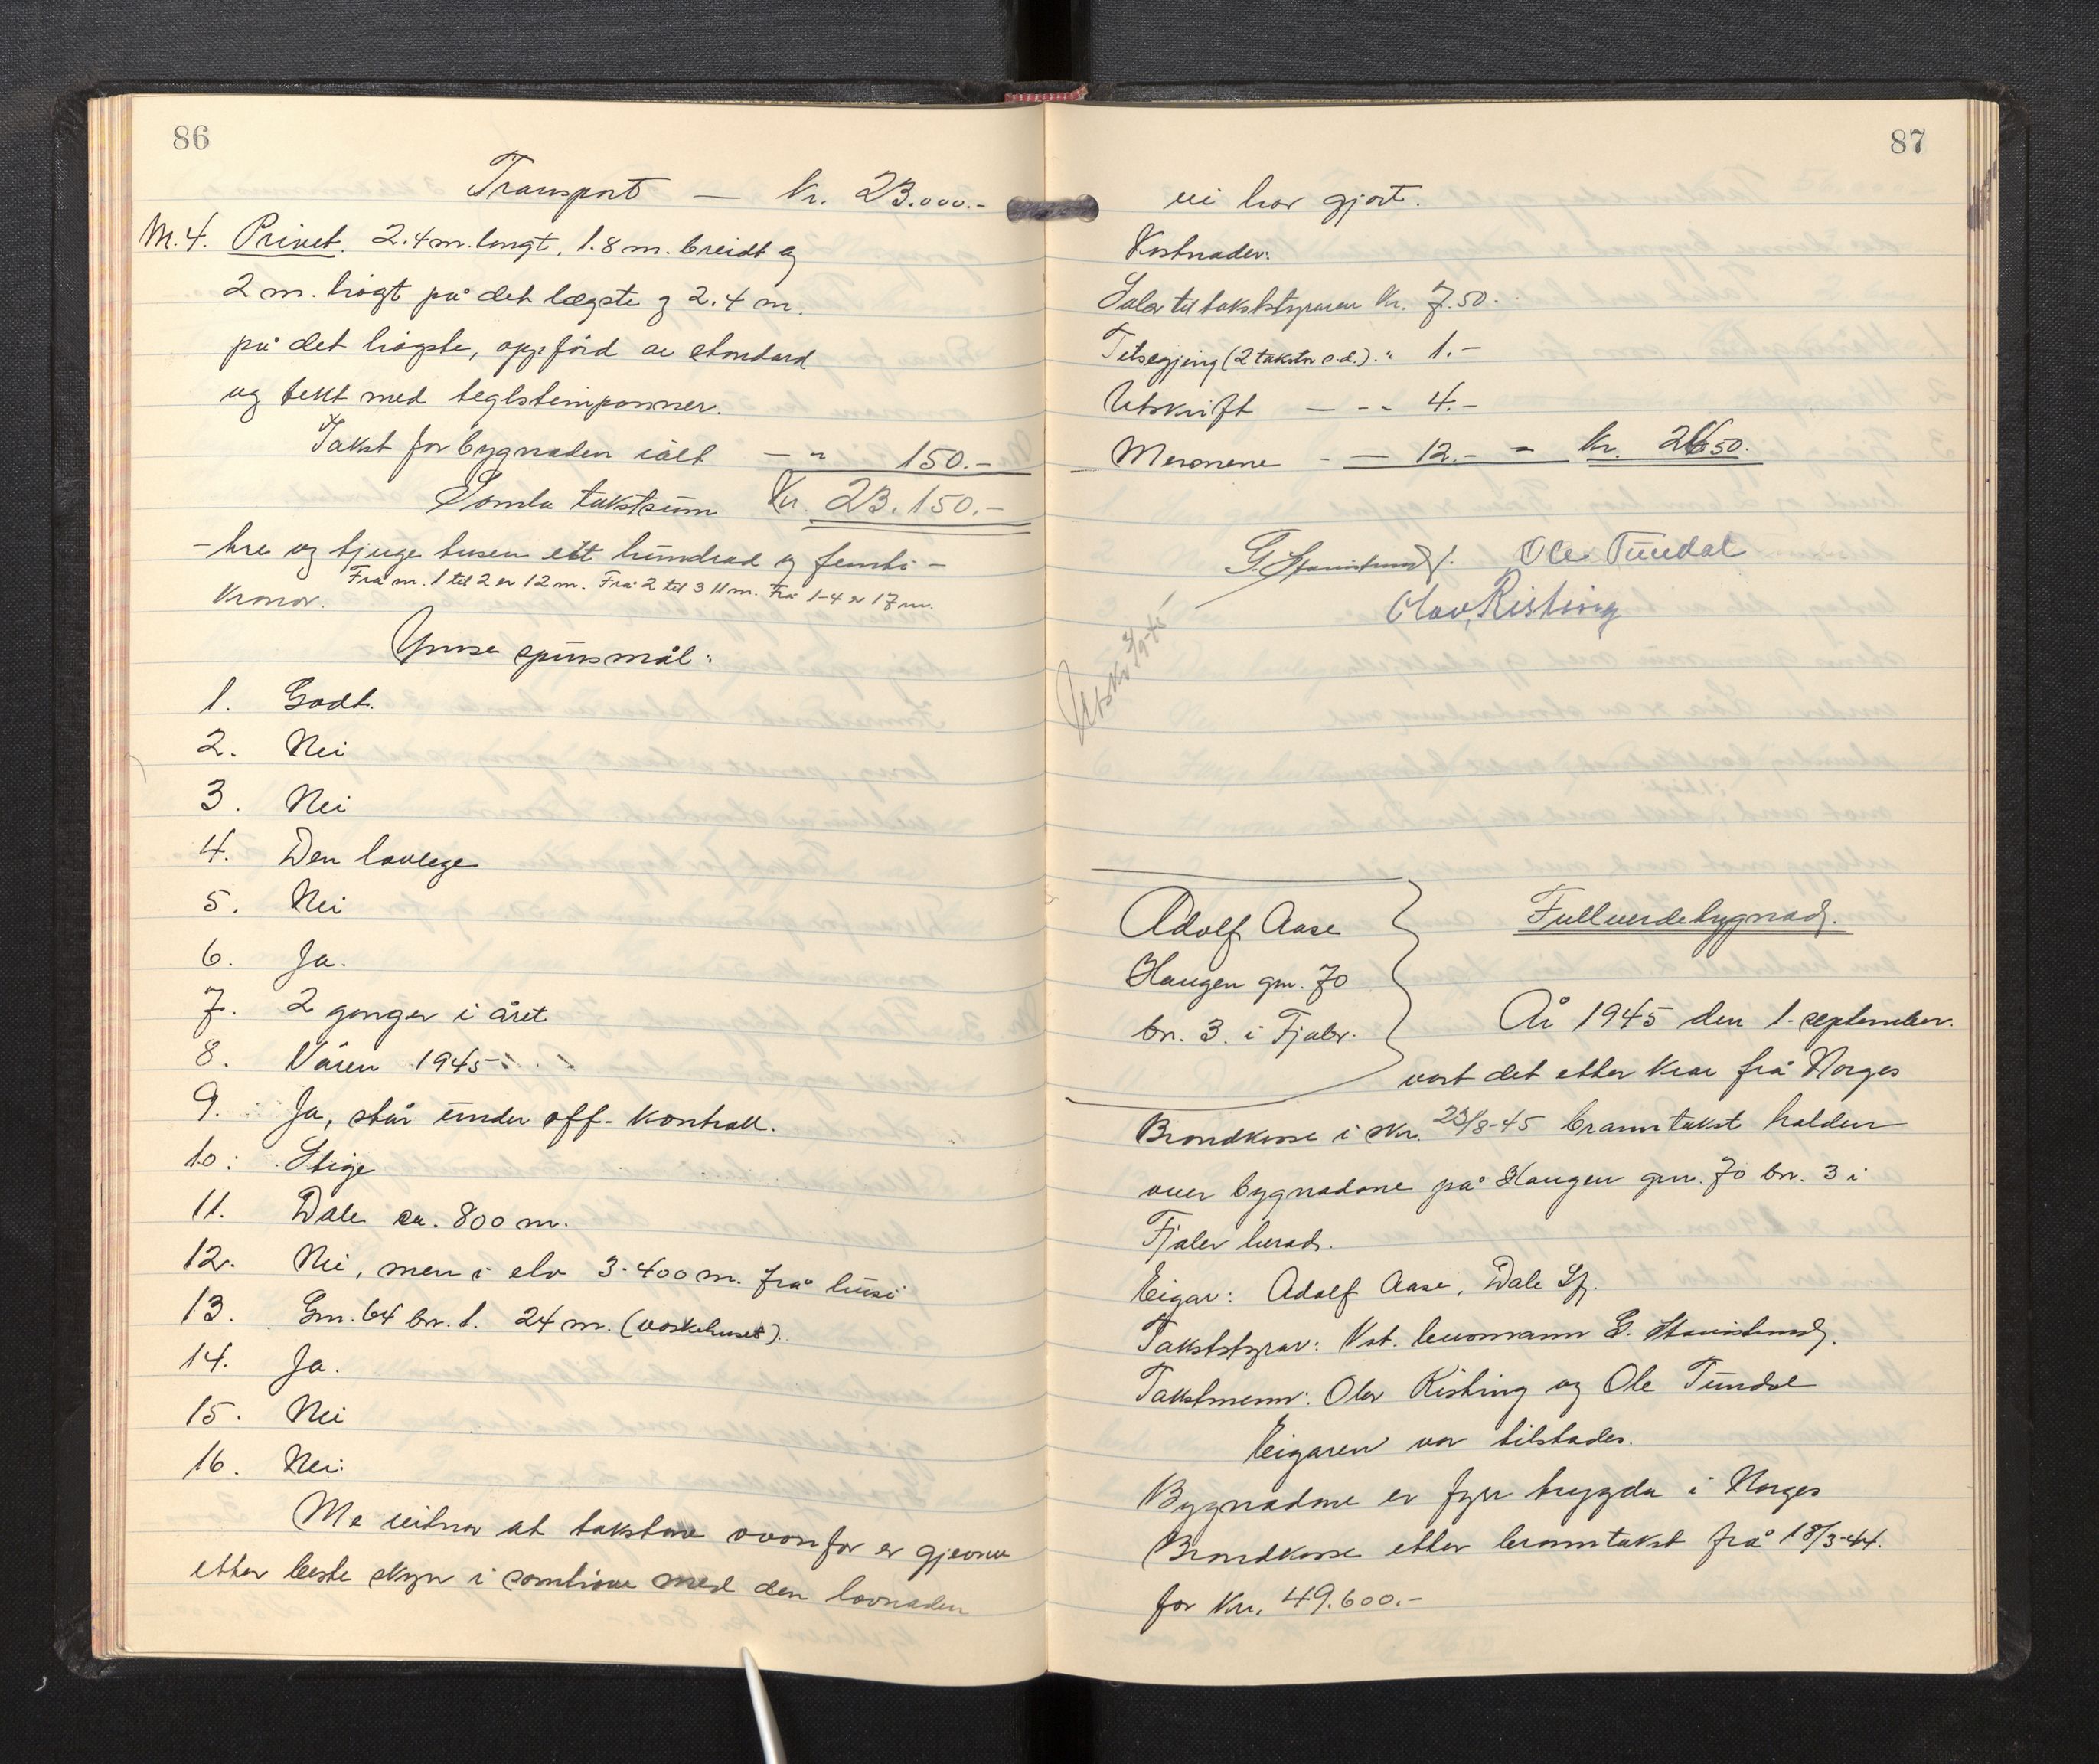 86
Transport — Kr. 23.000.-
M.4. Privet. 2.4 m. langt, 1.8 m. breidt og
2 m. høgt på det lægste og 2.4 m.
på det høgste, oppførd av standard
og tekt med teglsteinpanner.
Takst for bygnaden ialt — " 150.-
Samla takstsum Kr. 23.150.-
- tre og tjuge tusen eitt hundrad og femti -
Kronor. Frå m. 1 til 2 er 12 m. Frå 2 til 3 11 m. Frå 1-4 er 17 m.
Ymse spursmål:
1. Godt.
2. Nei
3. Nei
4. Den lovlege
5. Nei
6. Ja.
7. 2 gonger i året
8. Våren 1945
9. Ja, står under off. kontroll.
10. Stige
11. Dale ca. 800 m.
12. Nei, men i elv 3-400 m. frå husi
13. Gnr. 64 br. 1. 24 m. (vaskehuset).
14. Ja.
15. Nei
16. Nei.
Me vitnar at takstane ovanfor er gjevne
etter beste skyn i samhøve med den lovnaden
87
vi har gjort.
Kostnader:
Salær til takststyraren Kr. 7.50.
Tilsegjing (2 takster s.d.) " 1.-
Utskrift — - - 4.-
Mennene - — 12.- = Kr. 24.50.
Ole Tundal
Olav Risting
Utskr. 3/9-45
Adolf Aase
Haugen gnr. 70
br. 3. i Fjaler.
Fullverdebygnad.
År 1945 den 1. september.
vart det etter krav frå Norges
Brandkasse i skr. 23/8-45 branntakst halden
over bygnadane på Haugen gnr. 70 br. 3 i
Fjaler herad.
Eigar: Adolf Aase, Dale Sf.
Takststyrar: Vat. lensmann G.
Takstmenn: Olav Risting og Ole Tundal
Eigaren var tilstades.
Bygnadane er fyrr trygda i Norges
Brandkasse etter branntakst frå 18/3-44.
for Kr. 49.600.-